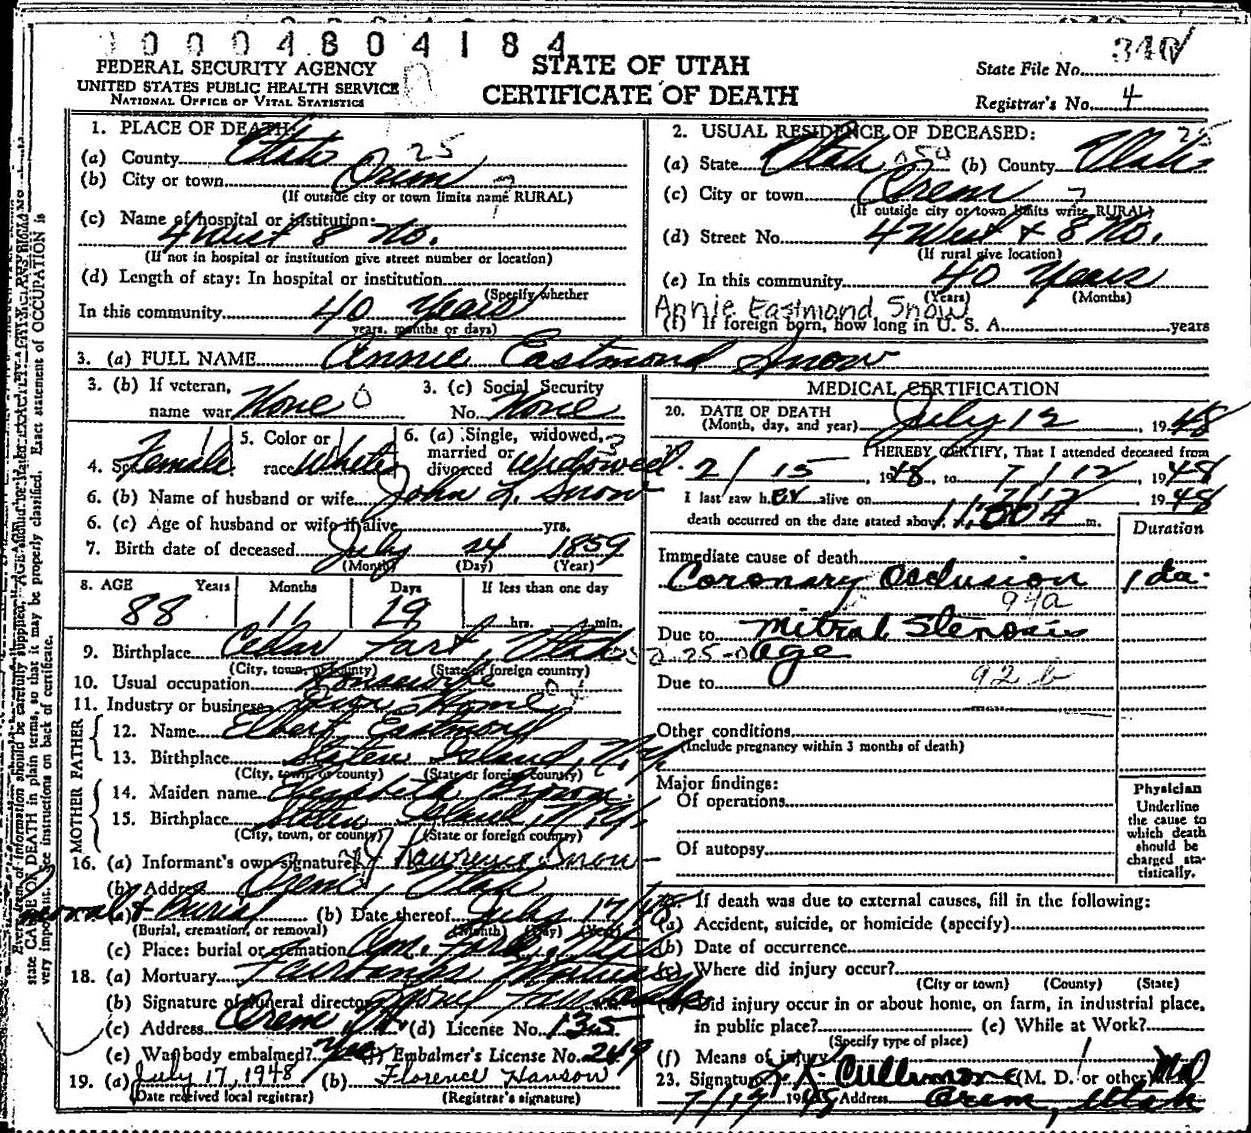 0 0 0 4 8 0 4 1 8 4
FEDERAL SECURITY AGENCY
UNITED STATES PUBLIC HEALTH SERVICE
NATIONAL OFFICE OF VITAL STATISTICS
STATE OF UTAH
CERTIFICATE OF DEATH
State File No. 340
Registrar's No. 4
1. PLACE OF DEATH:
(a) County Utah 25
(b) City or town Orem
(If outside city or town limits name RURAL)
(c) Name of hospital or institution:
4 West 8 No.
(If not in hospital or institution give street number or location)
(d) Length of stay: In hospital or institution
(Specify whether
In this community 40 Years
years, months or days)
2. USUAL RESIDENCE OF DECEASED:
(a) State Utah 050 (b) County Utah 25
(c) City or town Orem
(If outside city or town limits write RURAL)
(d) Street No. 4 West + 8 No.
(If rural give location)
(e) In this community 40 Years
(Years) (Months)
Annie Eastmond Snow
(f) If foreign born, how long in U. S. A. years
3. (a) FULL NAME Annie Eastmond Snow
3. (b) If veteran, name war None
3. (c) Social Security No. None
4. Sex Female
5. Color or race White
6. (a) Single, widowed, married or divorced Widowed
6. (b) Name of husband or wife John L. Snow
6. (c) Age of husband or wife if alive yrs.
7. Birth date of deceased July 24 1859
(Month) (Day) (Year)
8. AGE Years Months Days If less than one day
88 11 19 hrs. min.
9. Birthplace Cedar Fort, Utah
(City, town, or county) (State or foreign country)
10. Usual occupation Housewife
11. Industry or business Own Home
FATHER
12. Name Elbert Eastmond
13. Birthplace Staten Island, N.Y.
(City, town, or county) (State or foreign country)
MOTHER
14. Maiden name Elizabeth Brown
15. Birthplace Staten Island, N.Y.
(City, town, or county) (State or foreign country)
16. (a) Informant's own signature Lawrence Snow
(b) Address Orem, Utah
(a) & Burial (b) Date thereof July 17/48
(Burial, cremation, or removal) (Month) (Day) (Year)
(c) Place: burial or cremation Am. Fork
18. (a) Mortuary Mortuary
(b) Signature of funeral director
(c) Address Orem Ut. (d) License No. 135
(e) Was body embalmed? Yes (f) Embalmer's License No. 249
19. (a) July 17, 1948 (b) Florence Hanson
(Date received local registrar) (Registrar's signature)
MEDICAL CERTIFICATION
20. DATE OF DEATH
(Month, day, and year) July 12, 1948
I HEREBY CERTIFY, That I attended deceased from
2/15 1948, to 7/12, 1948
I last saw her alive on 7/12 1948
death occurred on the date stated above, m.
Duration
Immediate cause of death
Coronary Occlusion 1 da.
94a
Due to Mitral Stenosis
age
Due to 92 b
Other conditions
(Include pregnancy within 3 months of death)
Major findings:
Of operations
Of autopsy
Physician
Underline
the cause to
which death
should be
charged sta-
tistically.
If death was due to external causes, fill in the following:
(a) Accident, suicide, or homicide (specify)
(b) Date of occurrence
(c) Where did injury occur?
(City or town) (County) (State)
(d) Did injury occur in or about home, on farm, in industrial place,
in public place? (e) While at Work?
(Specify type of place)
(f) Means of injury
23. Signature Cullimore (M. D. or other) MD
Address Orem, Utah